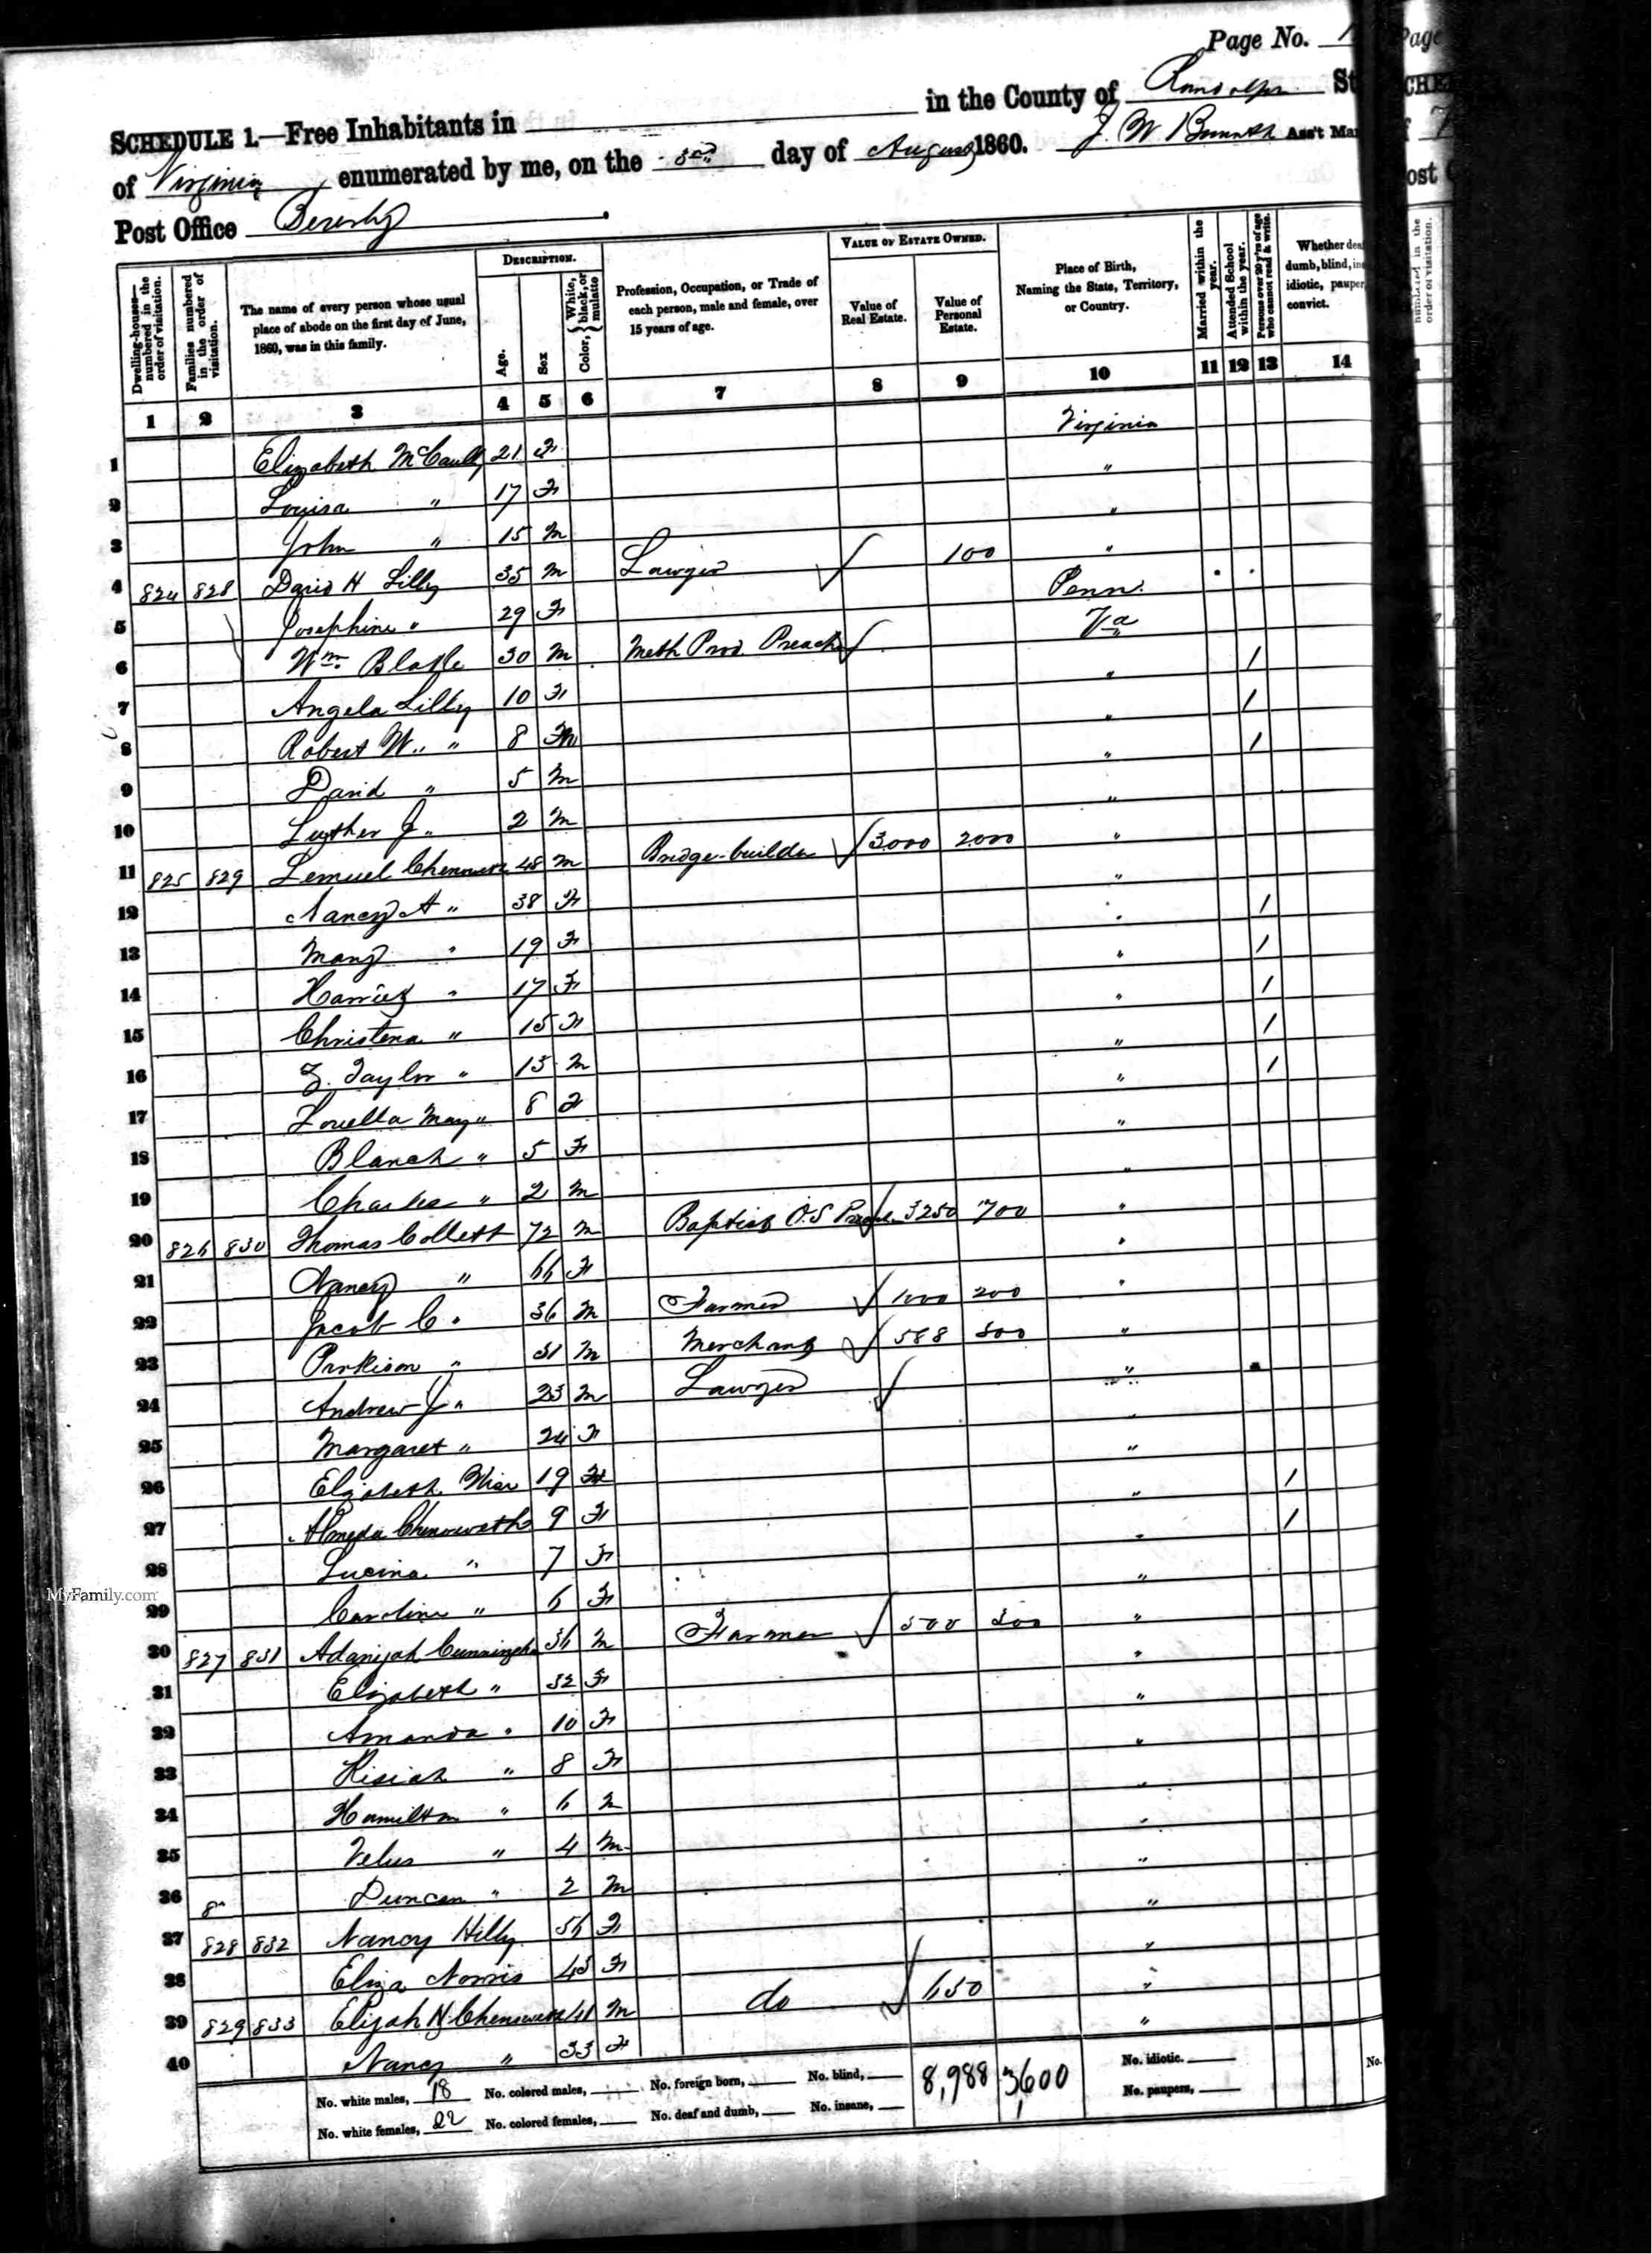 Page No. 1
SCHEDULE 1.—Free Inhabitants in in the County of Randolph St
of Virginia enumerated by me, on the 3rd day of August 1860. J. W. Ass't Mar
Post Office Beverly
Dwelling-houses—numbered in the order of visitation.
Families numbered in the order of visitation.
The name of every person whose usual place of abode on the first day of June, 1860, was in this family.
DESCRIPTION.
Age.
Sex
Color, { White, black, or mulatto
Profession, Occupation, or Trade of each person, male and female, over 15 years of age.
VALUE OF ESTATE OWNED.
Value of Real Estate.
Value of Personal Estate.
Place of Birth, Naming the State, Territory, or Country.
Married within the year.
Attended School within the year.
Persons over 20 y'rs of age who cannot read & write.
Whether dea dumb, blind, in idiotic, pauper convict.
1 2 3 4 5 6 7 8 9 10 11 12 13 14
1 Elizabeth McCaully 21 F Virginia
2 Louisa " 17 F "
3 John " 15 M "
4 824 828 David H Lilly 35 M Lawyer 100 "
5 Josephine " 29 F Penn.
6 Wm. Blake 30 M Meth Prod. Preach Va
7 Angela Lilly 10 F " 1
8 Robert W. " 8 M " 1
9 David " 5 M " 1
10 Luther J. " 2 M "
11 825 829 Lemuel Chenoweth 48 M Bridge-builder 3000 2000 "
12 Nancy A " 38 F "
13 Mary " 19 F " 1
14 Harriet " 17 F " 1
15 Christena " 15 F " 1
16 Z. Taylor " 13 M " 1
17 Louella May " 8 F " 1
18 Blanch " 5 F "
19 Charles " 2 M "
20 826 830 Thomas Collett 72 M Baptist O.S Preach 3250 700 "
21 Nancy " 66 F "
22 Jacob C. " 36 M Farmer 1000 200 "
23 Parkison " 31 M Merchant 588 300 "
24 Andrew J " 23 M Lawyer "
25 Margaret " 24 F "
26 Elizabeth 19 F "
27 Almeda Chenoweth 9 F " 1
28 Lucina " 7 F " 1
29 Caroline " 6 F "
30 827 831 Adanijah Cunningham 36 M Farmer 500 300 "
31 Elizabeth " 32 F "
32 Amanda " 10 F "
33 Kisiah " 8 F "
34 Hamilton " 6 M "
35 Velus " 4 M "
36 Duncan " 2 M "
37 828 832 Nancy Hilly 56 F "
38 Eliza Norris 45 F "
39 829 833 Elijah N Chenoweth 41 M do 650 "
40 Nancy " 33 F "
No. white males, 18 No. colored males, No. foreign born, No. blind, 8,988 3600 No. idiotic. No.
No. white females, 22 No. colored females, No. deaf and dumb, No. insane, No. paupers,
MyFamily.com
Page
CHE
ost
numbered in the order of visitation.
1